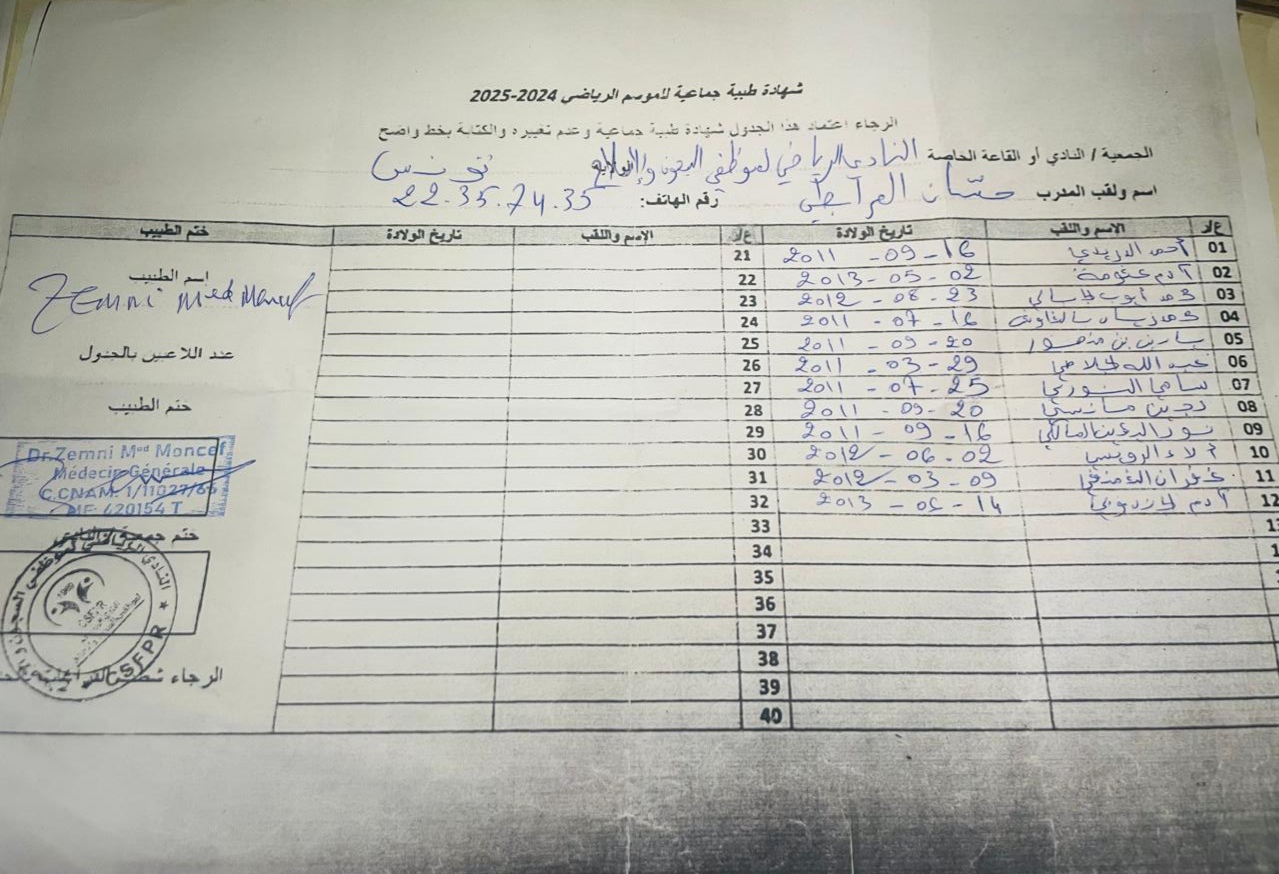 شهادة طبية جماعية للموسم الرياضي 2024-2025
الرجاء اعتماد هذا الجدول شهادة طبية جماعية وعدم تغييره والكتابة بخط واضح
الجمعية / النادي أو القاعة الخاصة النادي الرياضي لموظفي السجون والإصلاح الولاية تونس
اسم ولقب المدرب حسّان المرابطي رقم الهاتف: 22.35.74.35
ع/ر الاسم واللقب تاريخ الولادة ع/ر الإسم واللقب تاريخ الولادة ختم الطبيب
01 أحمد الدريدي 16-09-2011 21
02 آدم 02-05-2013 22
03 محمد أيوب 23-08-2012 23
04 محمد ريان 16-07-2011 24
05 بن منصور 20-09-2011 25
06 عبد الله 29-03-2011 26
07 سامي النوري 25-07-2011 27
08 20-09-2011 28
09 نور الدين المالكي 16-09-2011 29
10 آلاء الرويسي 02-06-2012 30
11 غفران 09-03-2012 31
12 آدم 14-06-2013 32
33
34
35
36
37
38
39
40
اسم الطبيب
Zemni Med Moncef
عدد اللاعبين بالجدول
ختم الطبيب
Dr. Zemni Med Moncef
Médecin Générale
C.CNAM: 1/11027/65
MF: 620154 T
ختم جمعية / النادي
النادي الرياضي لموظفي السجون
CSFPR
الرجاء